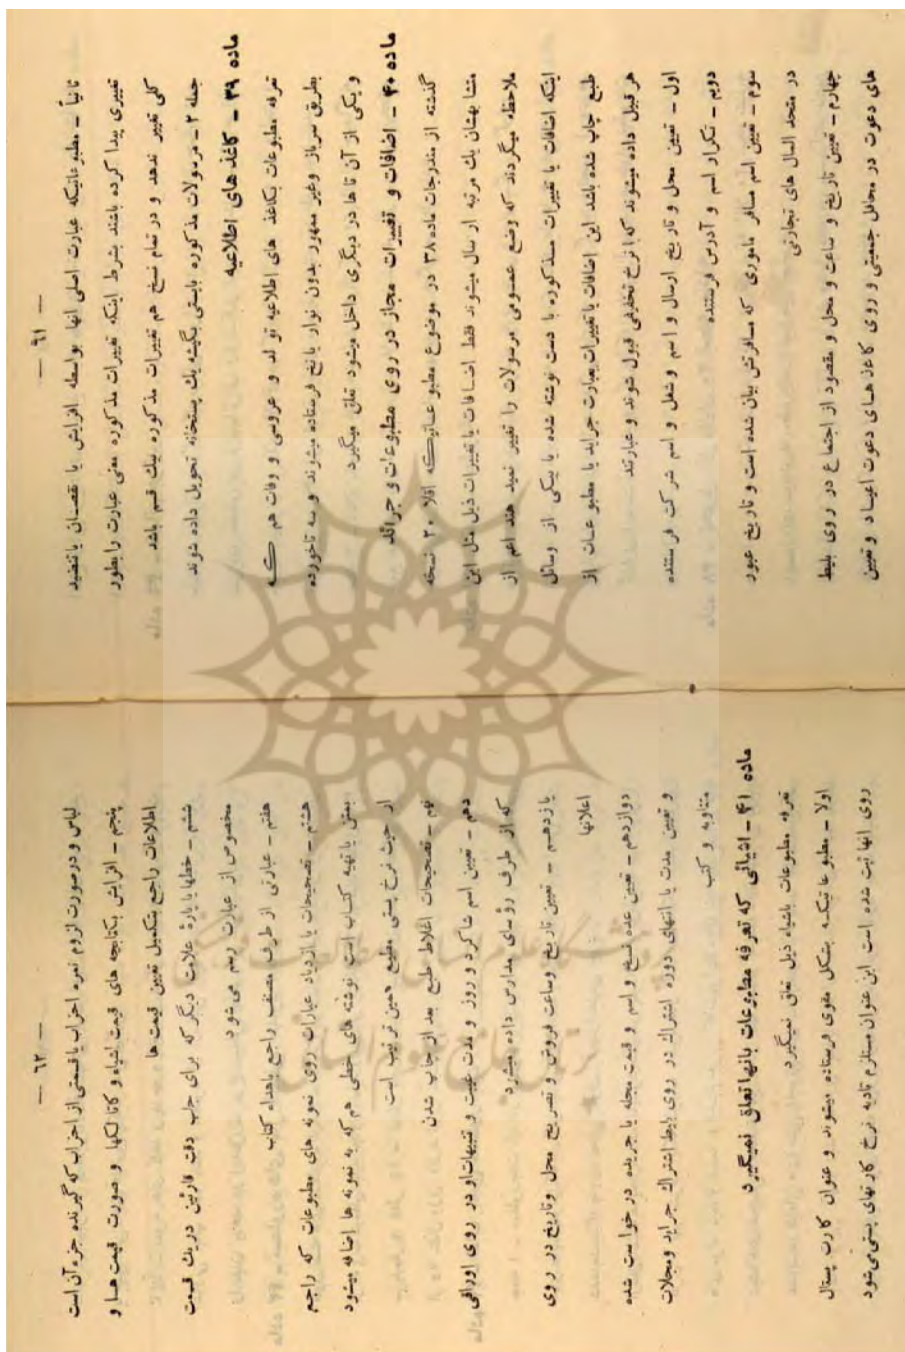 — ۶۱ —
ثانیاً – مطبوعاتیکه عبارت اصلی آنها بواسطه افزایش یا نقصان یا تنقید
تغییری پیدا کرده باشند بشرط اینکه تغییرات مذکوره معنی عبارت را بطور
کلی تغییر ندهد و در تمام نسخ هم تغییرات مذکوره یك قسم باشد
جمله ۲ – مرسولات مذکوره بایستی بگیشه یك پستخانه تحویل داده شوند
ماده ۳۹ – کاغذ های اطلاعیه
تعرفه مطبوعات بکاغذ های اطلاعیه تولد و عروسی و وفات هم که
بطریق سرباز وغیر ممهور بدون نوار یا نخ فرستاده میشوند و سه تاخورده
و یکی از آن تا ها در دیگری داخل میشود تعلق میگیرد
ماده ۴۰ – اضافات و تغییرات مجاز در روی مطبوعات و جرائد
گذشته از مندرجات ماده ۳۸ در موضوع مطبوعاتیکه اقلا ۲۰ نسخه
متشابهشان یك مرتبه ارسال میشوند فقط اضافات یا تغییرات ذیل مثل این
ملاحظه میگردند که وضع عمومی مرسولات را تغییر نمید هند اعم از
اینکه اضافات یا تغییرات مذکوره با دست نوشته شده یا بیکی از وسائل
طبع چاپ شده باشد این اضافات یا تغییرات بعبارت جراید یا مطبوعات از
هر قبیل داده میشوند که با نرخ تخفیفی قبول شوند و عبارتند
اول – تعیین محل و تاریخ ارسال و اسم وشغل و اسم شرکت فرستنده
دویم – تکرار اسم و آدرس فرستنده
سوم – تعیین اسم مسافر ماموری که مسافرتش بیان شده است و تاریخ عبور
در متحد المال های تجارتی
چهارم – تعیین تاریخ و ساعت و محل و مقصود از اجتماع در روی بلیط
های دعوت در محافل جمعیتی و روی کاغذ های دعوت اعیاد و تعیین
— ۶۲ —
لباس و درصورت لزوم نمره احزاب یا قسمتی از احزاب که گیرنده جزء آن است
پنجم – افزایش بکتابچه های قیمت اشیاء و کاتالکها و صورت قیمت ها و
اطلاعات راجع بتکمیل تعیین قیمت ها
ششم – خطها یا پارهٔ علامت دیگر که برای جلب دقت قارئین در یك قسمت
مخصوص از عبارت رسم می شود
هفتم – عبارتی از طرف مصنف راجع باهداء کتاب
هشتم – تصحیحات یا ازدیاد عبارات روی نمونه های مطبوعات که راجع
بمتن یا تهیه کتاب است نوشته های خطی هم که به نمونه ها اضافه میشود
از حیث نرخ پستی مطیع همین ترتیب است
نهم – تصحیحات اغلاط طبع بعد از چاپ شدن
دهم – تعیین اسم شاگرد و روز و مدت غیبت و تنبیهات او در روی اوراقی
که از طرف رؤسای مدارس داده میشود
یازدهم – تعیین تاریخ وساعت فروش و تصریح محل وتاریخ در روی
اعلانها
دوازدهم – تعیین عده نسخ و اسم و قیمت مجله یا جریده درخواست شده
و تعیین مدت یا انتهای دوره اشتراك در روی بلیط اشتراك جراید ومجلات
متناوبه و کتب
ماده ۴۱ – اشیائی که تعرفه مطبوعات بانها تعلق نمیگیرد
تعرفه مطبوعات باشیاء ذیل تعلق نمیگیرد
اولا – مطبوعاتیکه بشکل مقوی فرستاده میشوند و عنوان کارت پستال
روی آنها ثبت شده است این عنوان مستلزم تادیه نرخ کارتهای پستی می شود